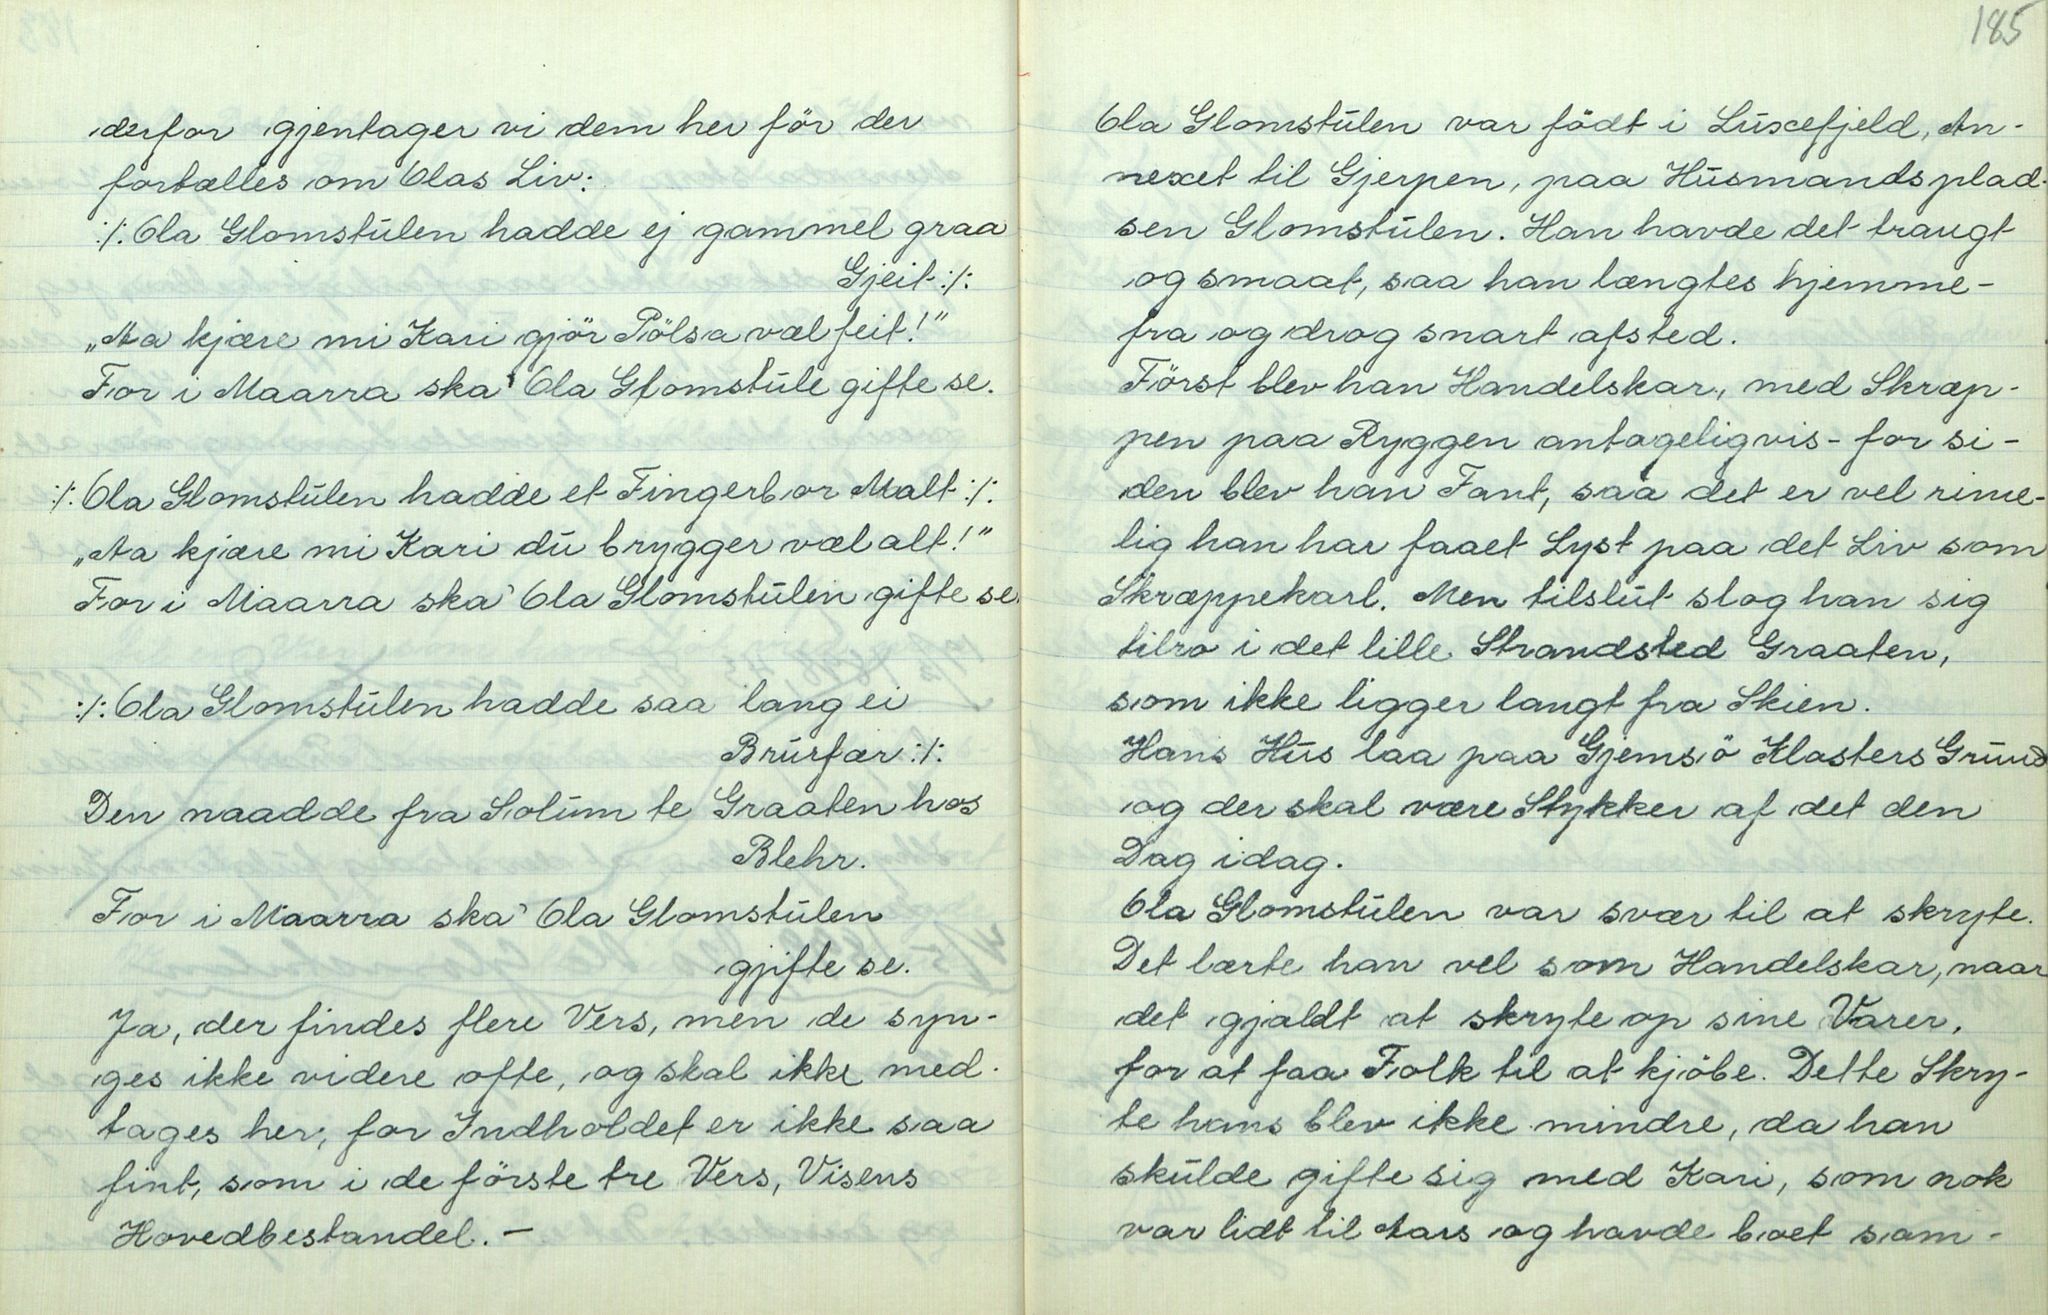 derfor gjentager vi dem her för der
fortælles om Olas Liv:
:/: Ola Glomstulen hadde ej gammel graa
Gjeit :/:
„Aa kjære mi Kari gjör Pölsa væl feit!"
For i Maarra ska' Ola Glomstule gifte se.
:/: Ola Glomstulen hadde et Fingerbor Malt :/:
„Aa kjære mi Kari du brygger væl alt!"
For i Maarra ska' Ola Glomstulen gifte se.
:/: Ola Glomstulen hadde saa lang ei
Brurfær :/:
Den naadde fra Solum te Graaten hos
Blehr.
For i Maarra ska' Ola Glomstulen
gjifte se.
Ja, der findes flere Vers, men de syn-
ges ikke videre ofte, og skal ikke med-
tages her, for Indholdet er ikke saa
fint, som i de förste tre Vers, Visens
Hovedbestandel. —
185
Ola Glomstulen var födt i Luxefjeld, An-
nexet til Gjerpen, paa Husmandsplad-
sen Glomstulen. Han havde det traugt
og smaat, saa han længtes hjemme-
fra og drog snart afsted.
Först blev han Handelskar, med Skræp-
pen paa Ryggen antageligvis - for si-
den blev han Fant, saa det er vel rime-
lig han har faaet Lyst paa det Liv som
Skræppekarl. Men tilslut slog han sig
tilro i det lille Strandsted Graaten,
som ikke ligger langt fra Skien.
Hans Hus laa paa Gjemsö Klosters Grund
og der skal være Stykker af det den
Dag idag.
Ola Glomstulen var svær til at skryte.
Det lærte han vel som Handelskar, naar
det gjaldt at skryte op sine Varer,
for at faa Folk til at kjöbe. Dette Skry-
te hans blev ikke mindre, da han
skulde gifte sig med Kari, som nok
var lidt til Aars og havde boet sam-